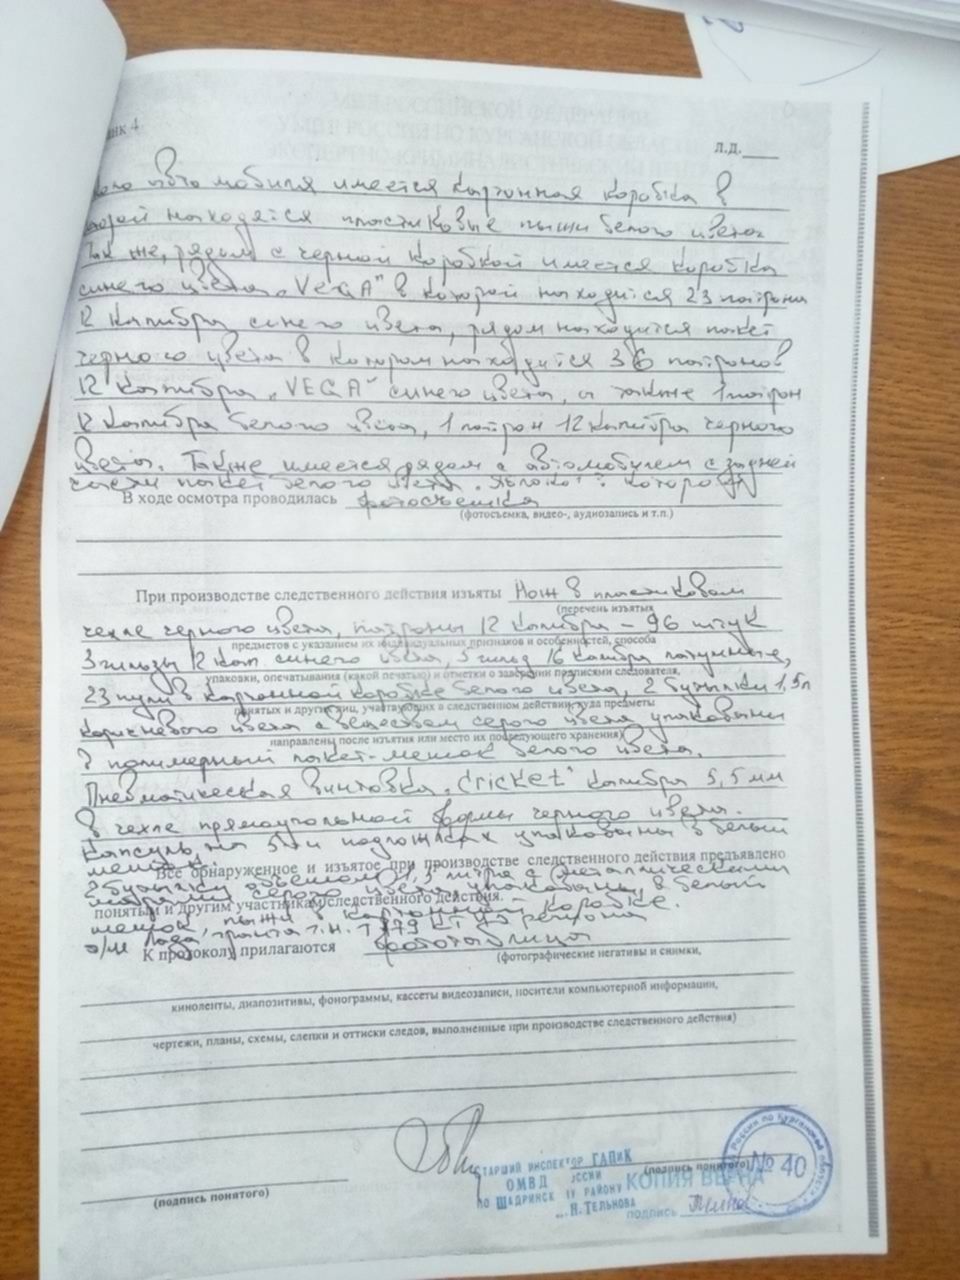 л.д.____
автомобиля имеется картонная коробка в
находятся пластиковые пыжи белого цвета.
Так же, рядом с черной коробкой имеется коробка
синего цвета „VEGA" в которой находится 23 патрона
12 калибра синего цвета, рядом находится пакет
черного цвета в котором находится 36 патронов
12 калибра „VEGA" синего цвета, а также 1 патрон
12 калибра белого цвета, 1 патрон 12 калибра черного
цвета. Также имеется рядом с автомобилем с задней
части пакет белого цвета
В ходе осмотра проводилась фотосъемка
(фотосъемка, видео-, аудиозапись и т.п.)
При производстве следственного действия изъяты Нож в пластиковом
(перечень изъятых
чехле черного цвета, патроны 12 калибра – 96 штук
предметов с указанием их индивидуальных признаков и особенностей, способа
3 гильзы 12 кал. синего цвета, 5 гильз 16 калибра латунные,
упаковки, опечатывания (какой печатью) и отметки о заверении подписями следователя,
23 пули в картонной коробке белого цвета, 2 бутылки 1,5л
понятых и других лиц, участвующих в следственном действии, куда предметы
коричневого цвета с веществом серого цвета упакованы
направлены после изъятия или место их последующего хранения)
в полимерный пакет-мешок белого цвета.
Пневматическая винтовка „Cricket" калибра 5,5 мм
в чехле прямоугольной формы черного цвета.
упакованы в белый
мешок.
Все обнаруженное и изъятое при производстве следственного действия предъявлено
2 бутылки объемом 1,5 литра с металлическими
серого цвета упакованы в белый
понятым и другим участникам следственного действия.
мешок, пыжи в картонной коробке.
а/м Лада гранта г.н. региона
К протоколу прилагаются фототаблица
(фотографические негативы и снимки,
киноленты, диапозитивы, фонограммы, кассеты видеозаписи, носители компьютерной информации,
чертежи, планы, схемы, слепки и оттиски следов, выполненные при производстве следственного действия)
(подпись понятого)
(подпись понятого)
СТАРШИЙ ИНСПЕКТОР ГАПиК
ОМВД РОССИИ
ПО ШАДРИНСК РАЙОНУ
Н. ТЕЛЬНОВА
КОПИЯ ВЕРНА
подпись
России по Курганской области
№ 40